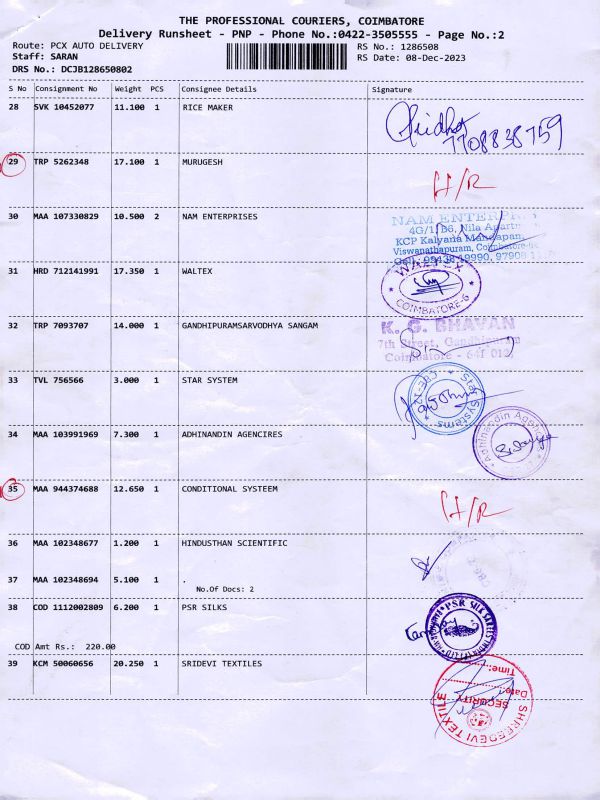 THE PROFESSIONAL COURIERS, COIMBATORE
Delivery Runsheet - PNP - Phone No.:0422-3505555 - Page No.:2
Route: PCX AUTO DELIVERY
RS No.: 1286508
Staff: SARAN
RS Date: 08-Dec-2023
DRS No.: DCJB128650802
S No Consignment No Weight PCS Consignee Details Signature
28 SVK 10452077 11.100 1 RICE MAKER
7708838759
29 TRP 5262348 17.100 1 MURUGESH
H/R
30 MAA 107330829 10.500 2 NAM ENTERPRISES
NAM ENTERPRIS
4G/1, B6, Nila Apartm
KCP Kalyana Mandapam,
Viswanathapuram, Coimbatore-
19990, 97908
31 HRD 712141991 17.350 1 WALTEX
WALTEX
COIMBATORE-6
32 TRP 7093707 14.000 1 GANDHIPURAMSARVODHYA SANGAM
K. G. BHAVAN
7th Street, Gandhipuram
Coimbatore - 641 012
33 TVL 756566 3.000 1 STAR SYSTEM
Star Systems
34 MAA 103991969 7.300 1 ADHINANDIN AGENCIRES
Adhinandin Agencies
35 MAA 944374688 12.650 1 CONDITIONAL SYSTEEM
H/R
36 MAA 102348677 1.200 1 HINDUSTHAN SCIENTIFIC
37 MAA 102348694 5.100 1 .
No.Of Docs: 2
38 COD 1112002809 6.200 1 PSR SILKS
PSR SILK SAREES
COD Amt Rs.: 220.00
39 KCM 50060656 20.250 1 SRIDEVI TEXTILES
SHREEDEVI TEXTILE
SECURITY
Date:
Time: